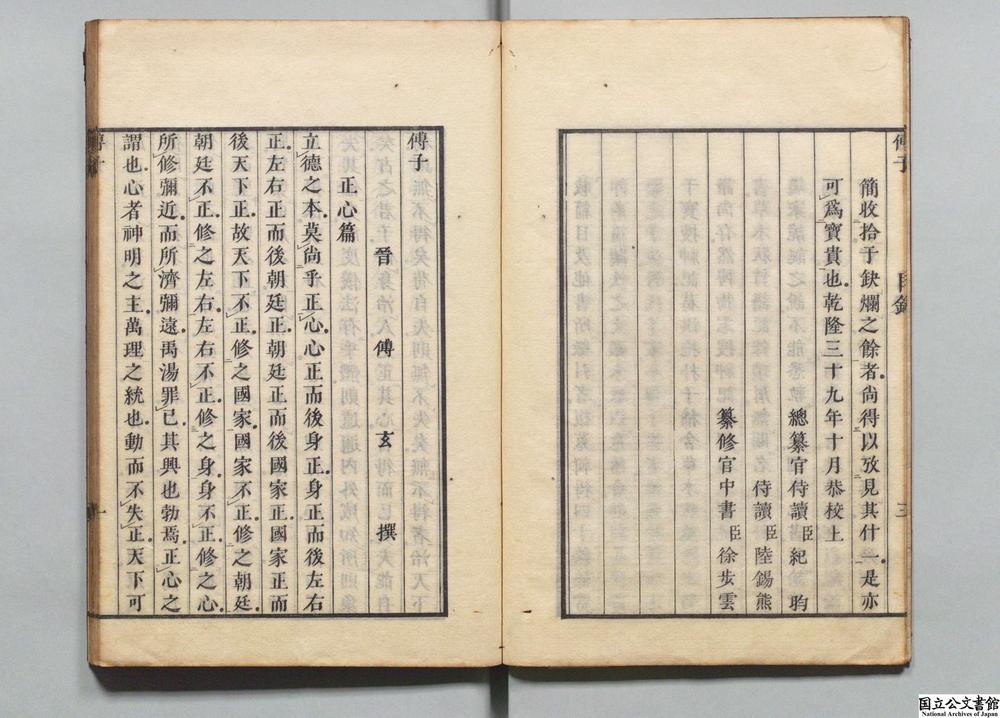 傅子
目錄
三
簡收拾于鈌爛之餘者尚得以攷見其什一是亦
可爲寶貴也乾隆三十九年十月恭校上
總纂官侍讀臣紀昀
侍讀臣陸錫熊
纂修官中書臣徐步雲
傅子
晉傅玄撰
正心篇
立德之本莫尚乎正心心正而後身正身正而後左右
正左右正而後朝廷正朝廷正而後國家正國家正而
後天下正故天下不正修之國家國家不正修之朝廷
朝廷不正修之左右左右不正修之身身不正修之心
所修彌近而所濟彌遠禹湯罪已其興也勃焉正心之
謂也心者神明之主萬理之統也動而不失正天下可
傅子
国立公文書館
National Archives of Japan